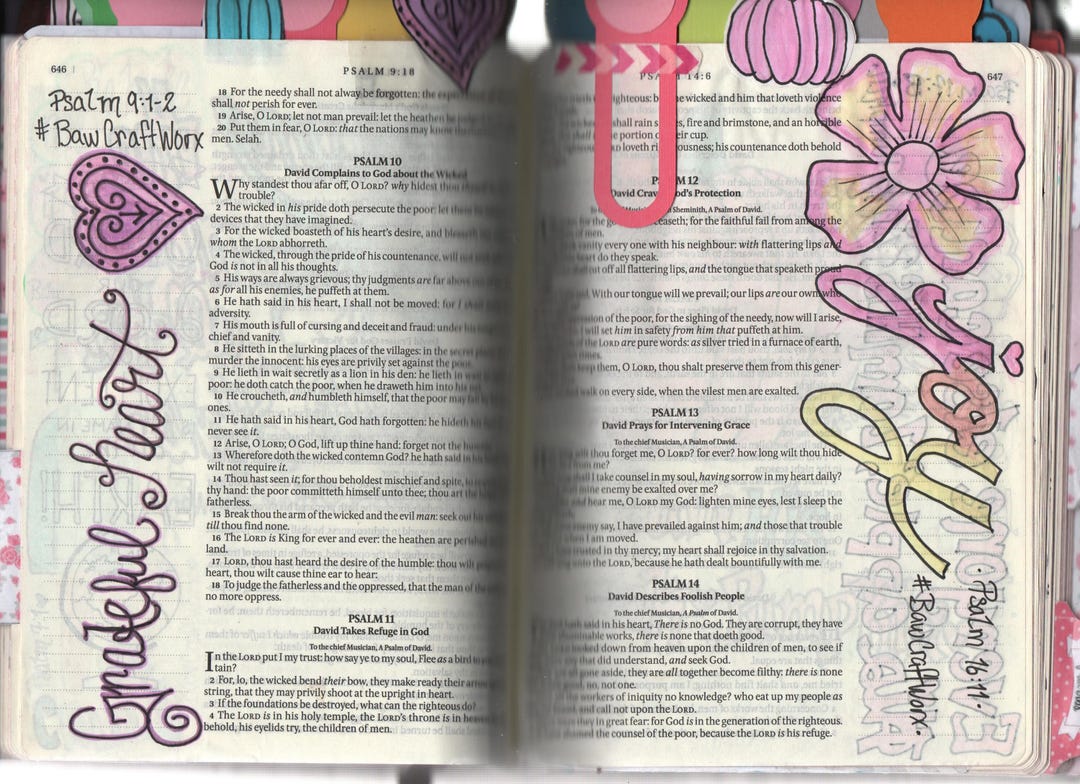 646
PSALM 9:18
Psalm 9:1-2
#BawCraftWorx
Grateful heart
18 For the needy shall not alway be forgotten: the
shall not perish for ever.
19 Arise, O LORD; let not man prevail: let the heathen
20 Put them in fear, O LORD: that the nations may know
men. Selah.
PSALM 10
David Complains to God about the Wicked
Why standest thou afar off, O LORD? why hidest thou
trouble?
2 The wicked in his pride doth persecute the poor: let
devices that they have imagined.
3 For the wicked boasteth of his heart's desire, and
whom the LORD abhorreth.
4 The wicked, through the pride of his countenance, will not
God is not in all his thoughts.
5 His ways are always grievous; thy judgments are far above
as for all his enemies, he puffeth at them.
6 He hath said in his heart, I shall not be moved: for I
adversity.
7 His mouth is full of cursing and deceit and fraud: under his
chief and vanity.
8 He sitteth in the lurking places of the villages: in the secret
murder the innocent: his eyes are privily set against the poor.
9 He lieth in wait secretly as a lion in his den: he lieth in
poor: he doth catch the poor, when he draweth him into his
10 He croucheth, and humbleth himself, that the poor may fall
ones.
11 He hath said in his heart, God hath forgotten: he hideth his
never see it.
12 Arise, O LORD; O God, lift up thine hand: forget not the
13 Wherefore doth the wicked contemn God? he hath said in his
wilt not require it.
14 Thou hast seen it; for thou beholdest mischief and spite, to
thy hand: the poor committeth himself unto thee; thou art the
fatherless.
15 Break thou the arm of the wicked and the evil man: seek out
till thou find none.
16 The LORD is King for ever and ever: the heathen are perished
land.
17 LORD, thou hast heard the desire of the humble: thou wilt
heart, thou wilt cause thine ear to hear:
18 To judge the fatherless and the oppressed, that the man of
no more oppress.
PSALM 11
David Takes Refuge in God
To the chief Musician, A Psalm of David.
In the LORD put I my trust: how say ye to my soul, Flee as a bird
tain?
2 For, lo, the wicked bend their bow, they make ready their
string, that they may privily shoot at the upright in heart.
3 If the foundations be destroyed, what can the righteous do?
4 The LORD is in his holy temple, the LORD's throne is in
behold, his eyelids try, the children of men.
14:6
647
righteous: the wicked and him that loveth violence
shall rain fire and brimstone, and an horrible
portion of their cup.
loveth his countenance doth behold
12
God's Protection
Sheminith, A Psalm of David.
ceaseth; for the faithful fail from among the
of men.
vanity every one with his neighbour: with flattering lips and
heart do they speak.
off all flattering lips, and the tongue that speaketh proud
said, With our tongue will we prevail; our lips are our own: who
of the poor, for the sighing of the needy, now will I arise,
I will set him in safety from him that puffeth at him.
of the LORD are pure words: as silver tried in a furnace of earth,
times.
keep them, O LORD, thou shalt preserve them from this gener-
walk on every side, when the vilest men are exalted.
PSALM 13
David Prays for Intervening Grace
To the chief Musician, A Psalm of David.
wilt thou forget me, O LORD? for ever? how long wilt thou hide
from me?
shall I take counsel in my soul, having sorrow in my heart daily?
mine enemy be exalted over me?
and hear me, O LORD my God: lighten mine eyes, lest I sleep the
enemy say, I have prevailed against him; and those that trouble
when I am moved.
trusted in thy mercy; my heart shall rejoice in thy salvation.
unto the LORD, because he hath dealt bountifully with me.
PSALM 14
David Describes Foolish People
To the chief Musician, A Psalm of David.
hath said in his heart, There is no God. They are corrupt, they have
works, there is none that doeth good.
looked down from heaven upon the children of men, to see if
that did understand, and seek God.
all gone aside, they are all together become filthy: there is none
no, not one.
workers of iniquity no knowledge? who eat up my people as
and call not upon the LORD.
they in great fear: for God is in the generation of the righteous.
the counsel of the poor, because the LORD is his refuge.
joy
Psalm 16:11
#BawCraftWorx